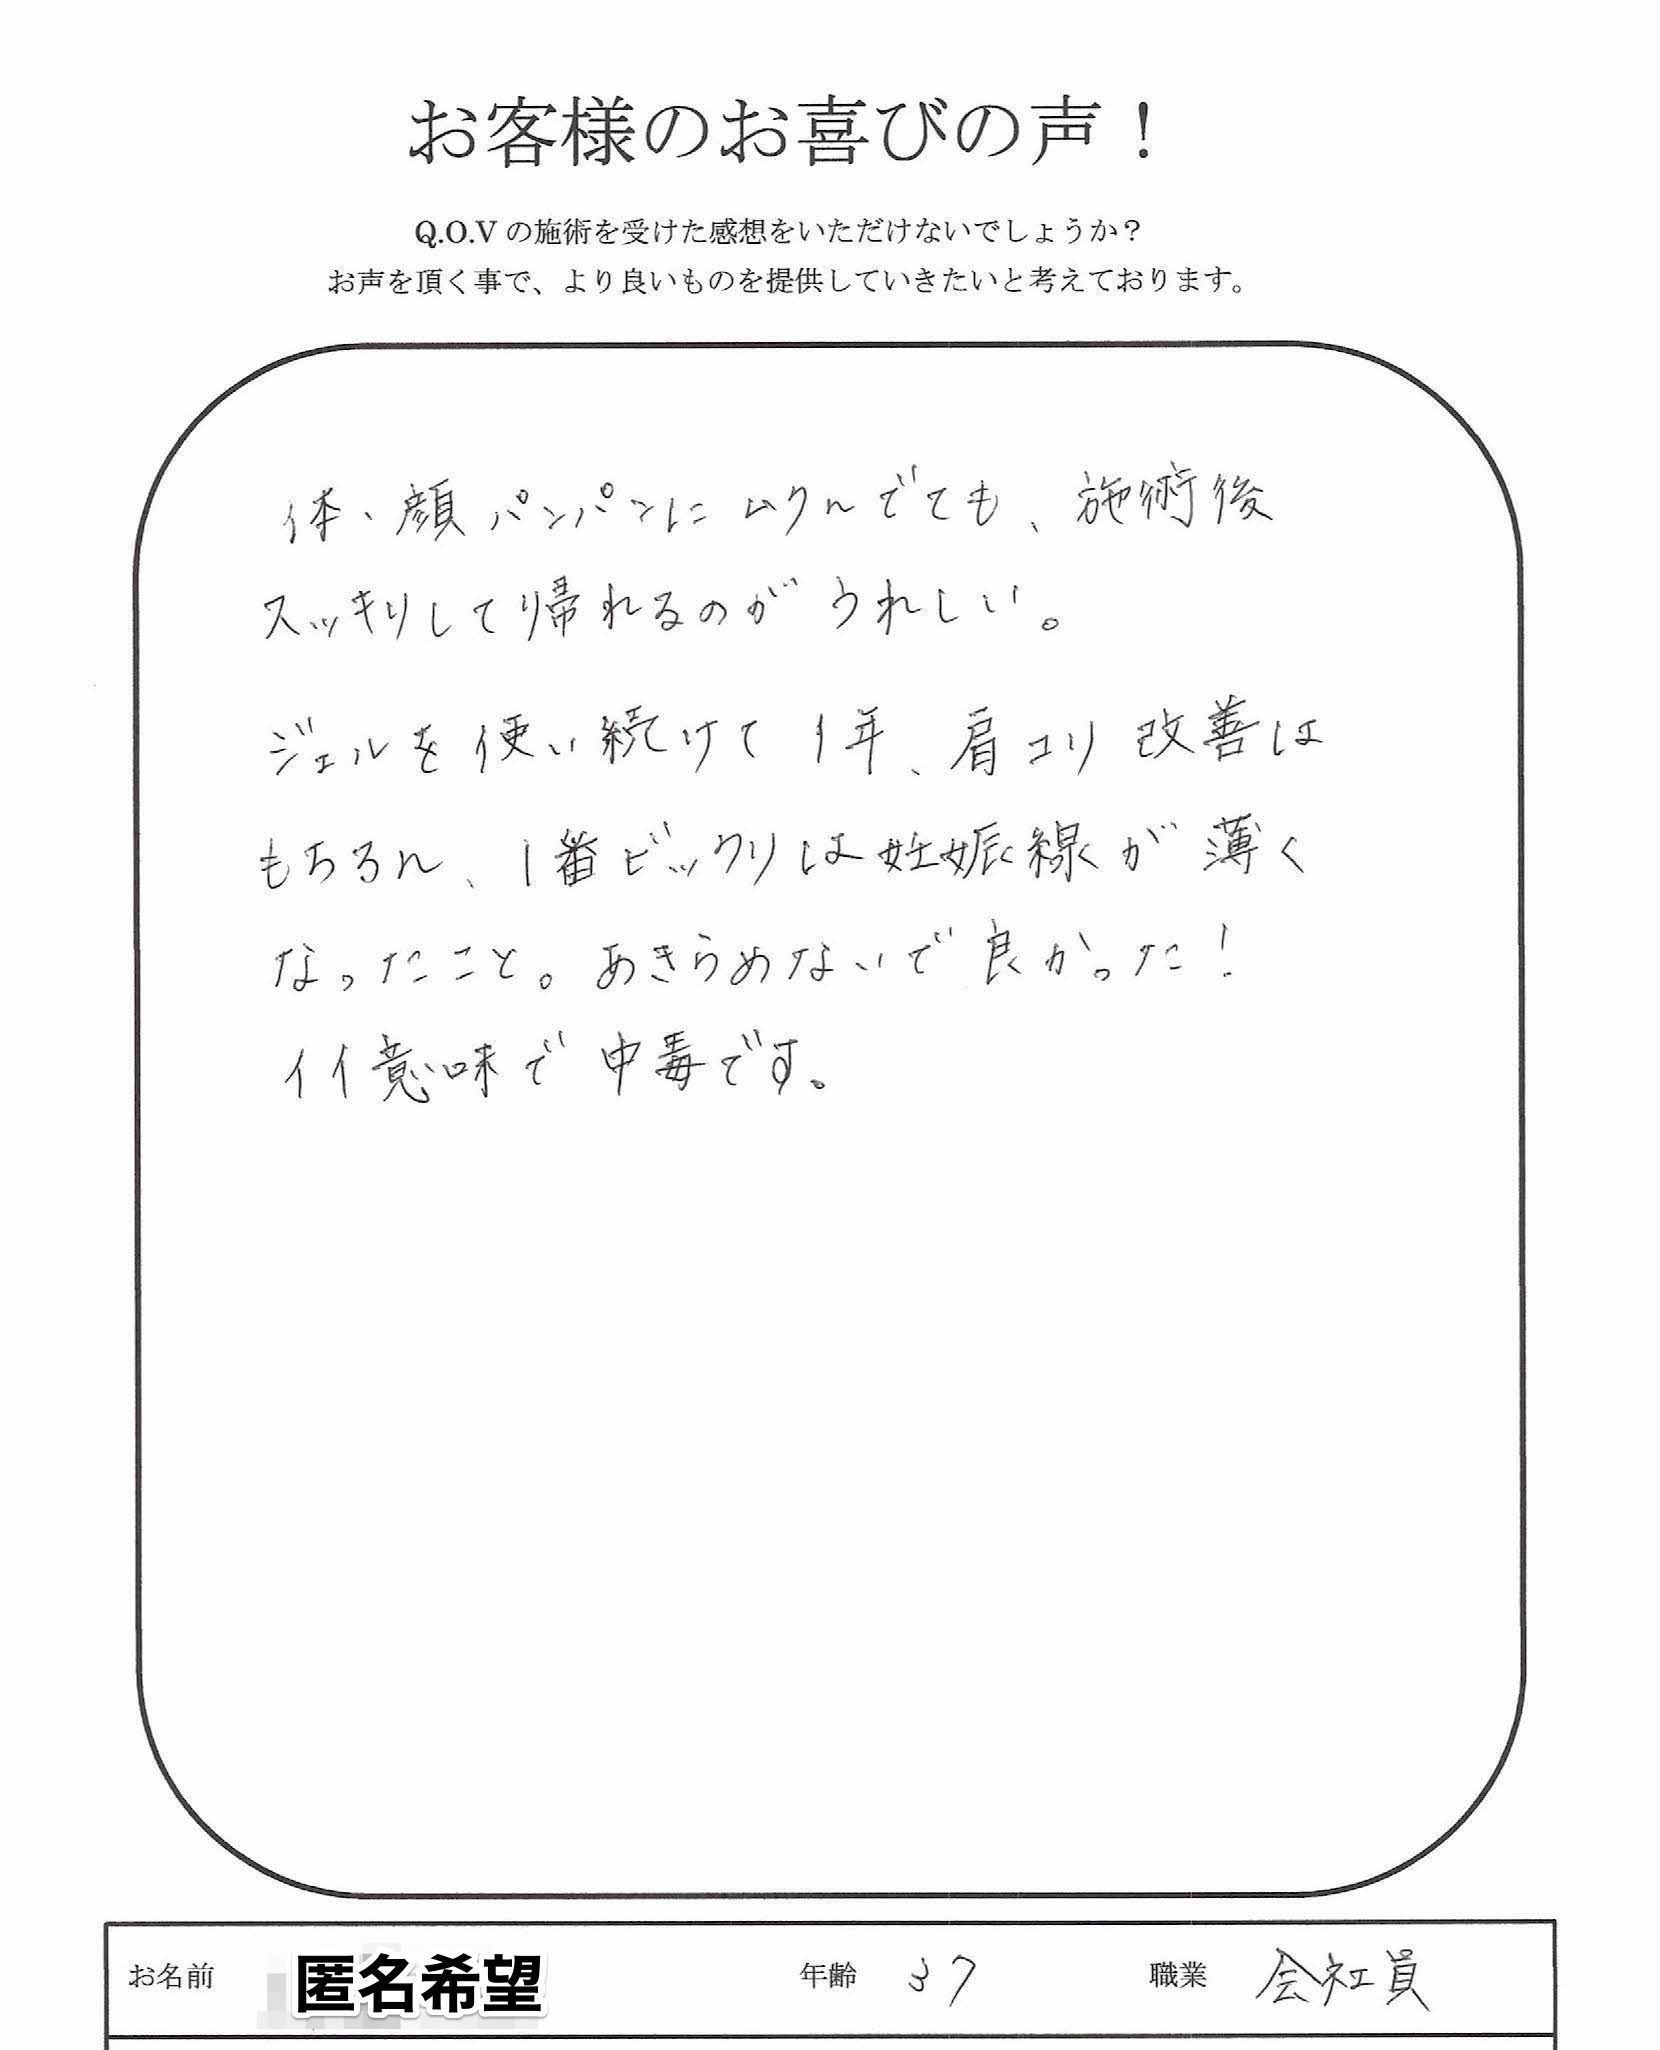 お客様のお喜びの声！
Q.O.Vの施術を受けた感想をいただけないでしょうか？
お声を頂く事で、より良いものを提供していきたいと考えております。
体・顔パンパンにムクんでても、施術後
スッキリして帰れるのがうれしい。
ジェルを使い続けて1年、肩コリ改善は
もちろん、1番ビックリは妊娠線が薄く
なったこと。あきらめないで良かった！
イイ意味で中毒です。
お名前 匿名希望 年齢 37 職業 会社員